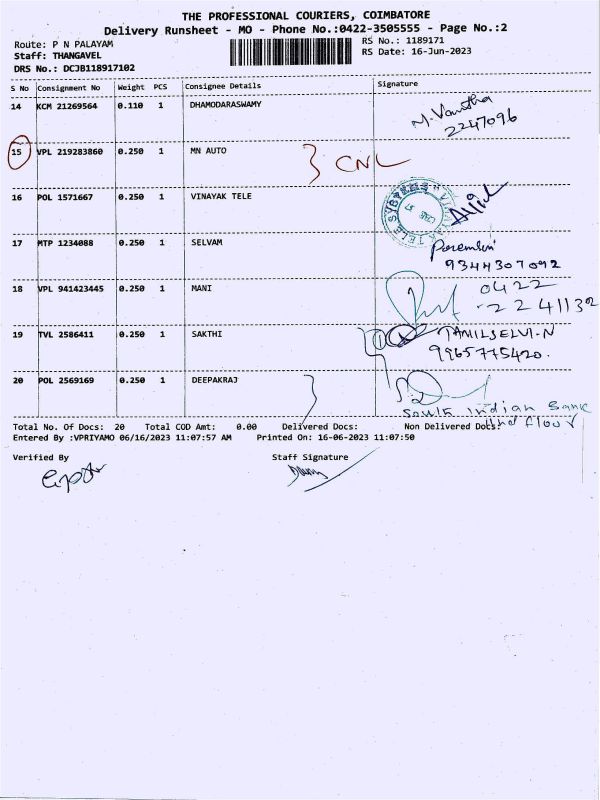 THE PROFESSIONAL COURIERS, COIMBATORE
Delivery Runsheet - MO - Phone No.:0422-3505555 - Page No.:2
Route: P N PALAYAM RS No.: 1189171
Staff: THANGAVEL RS Date: 16-Jun-2023
DRS No.: DCJB118917102
S No Consignment No Weight PCS Consignee Details Signature
14 KCM 21269564 0.110 1 DHAMODARASWAMY M. Vanitha
2247096
15 VPL 219283860 0.250 1 MN AUTO CNL
16 POL 1571667 0.250 1 VINAYAK TELE
VINAYAK TELE SYSTEMS
17 MTP 1234088 0.250 1 SELVAM
9344307092
18 VPL 941423445 0.250 1 MANI 0422
-2241132
19 TVL 2586411 0.250 1 SAKTHI TAMILSELVI.N
9965775420.
20 POL 2569169 0.250 1 DEEPAKRAJ
South Indian Bank
IInd floor
Total No. Of Docs: 20 Total COD Amt: 0.00 Delivered Docs: Non Delivered Docs:
Entered By :VPRIYAMO 06/16/2023 11:07:57 AM Printed On: 16-06-2023 11:07:50
Verified By Staff Signature